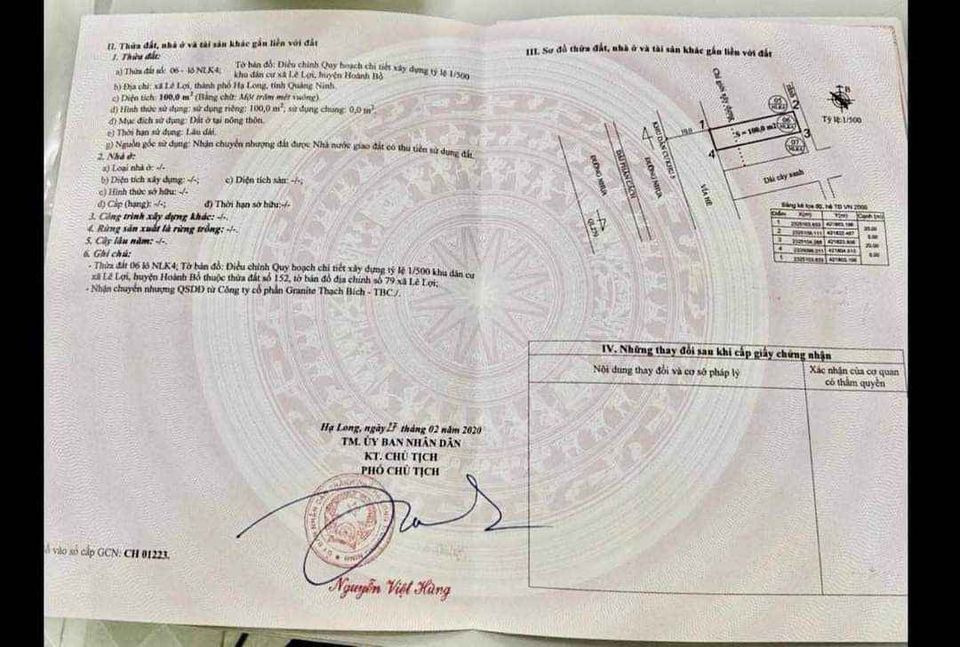 II. Thửa đất, nhà ở và tài sản khác gắn liền với đất
1. Thửa đất:
a) Thửa đất số: 06 - lô NLK4; Tờ bản đồ: Điều chỉnh Quy hoạch chi tiết xây dựng tỷ lệ 1/500
khu dân cư xã Lê Lợi, huyện Hoành Bồ
b) Địa chỉ: xã Lê Lợi, thành phố Hạ Long, tỉnh Quảng Ninh.
c) Diện tích: 100,0 m² (Bằng chữ: Một trăm mét vuông).
d) Hình thức sử dụng: sử dụng riêng: 100,0 m²; sử dụng chung: 0,0 m².
đ) Mục đích sử dụng: Đất ở tại nông thôn.
e) Thời hạn sử dụng: Lâu dài.
g) Nguồn gốc sử dụng: Nhận chuyển nhượng đất được Nhà nước giao đất có thu tiền sử dụng đất.
2. Nhà ở:
a) Loại nhà ở: -/-
b) Diện tích xây dựng: -/-; c) Diện tích sàn: -/-;
c) Hình thức sở hữu: -/-
d) Cấp (hạng): -/-; đ) Thời hạn sở hữu:-/-
3. Công trình xây dựng khác: -/-.
4. Rừng sản xuất là rừng trồng: -/-.
5. Cây lâu năm: -/-.
6. Ghi chú:
- Thửa đất 06 lô NLK4; Tờ bản đồ: Điều chỉnh Quy hoạch chi tiết xây dựng tỷ lệ 1/500 khu dân cư
xã Lê Lợi, huyện Hoành Bồ thuộc thửa đất số 152, tờ bản đồ địa chính số 79 xã Lê Lợi;
- Nhận chuyển nhượng QSDĐ từ Công ty cổ phần Granite Thạch Bích - TBC./.
Hạ Long, ngày 27 tháng 02 năm 2020
TM. ỦY BAN NHÂN DÂN
KT. CHỦ TỊCH
PHÓ CHỦ TỊCH
Nguyễn Việt Hùng
vào sổ cấp GCN: CH 01223.
III. Sơ đồ thửa đất, nhà ở và tài sản khác gắn liền với đất
B
Tỷ lệ:1/500
Chỉ giới xây dựng
05
NLK4
06
NLK4
07
NLK4
1
2
3
4
S = 100,0 m²
10.0
Dải cây xanh
VỈA HÈ
ĐƯỜNG NHỰA
DẢI PHÂN CÁCH
ĐƯỜNG NHỰA
QL279
Bảng kê tọa độ, hệ TĐ VN 2000
Điểm X(m) Y(m) Cạnh (m)
1
2
3
4
1
20.00
5.00
20.00
5.00
IV. Những thay đổi sau khi cấp giấy chứng nhận
Nội dung thay đổi và cơ sở pháp lý
Xác nhận của cơ quan
có thẩm quyền